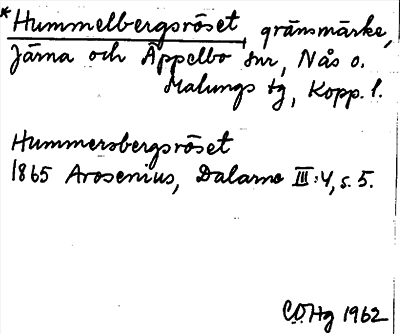 *Hummelbergsröset, gränsmärke,
Järna och Äppelbo snr, Nås o.
Malungs tg, Kopp. l.
Hummersbergsröset
1865 Arosenius, Dalarne III:4, s. 5.
C.O.Hg 1962